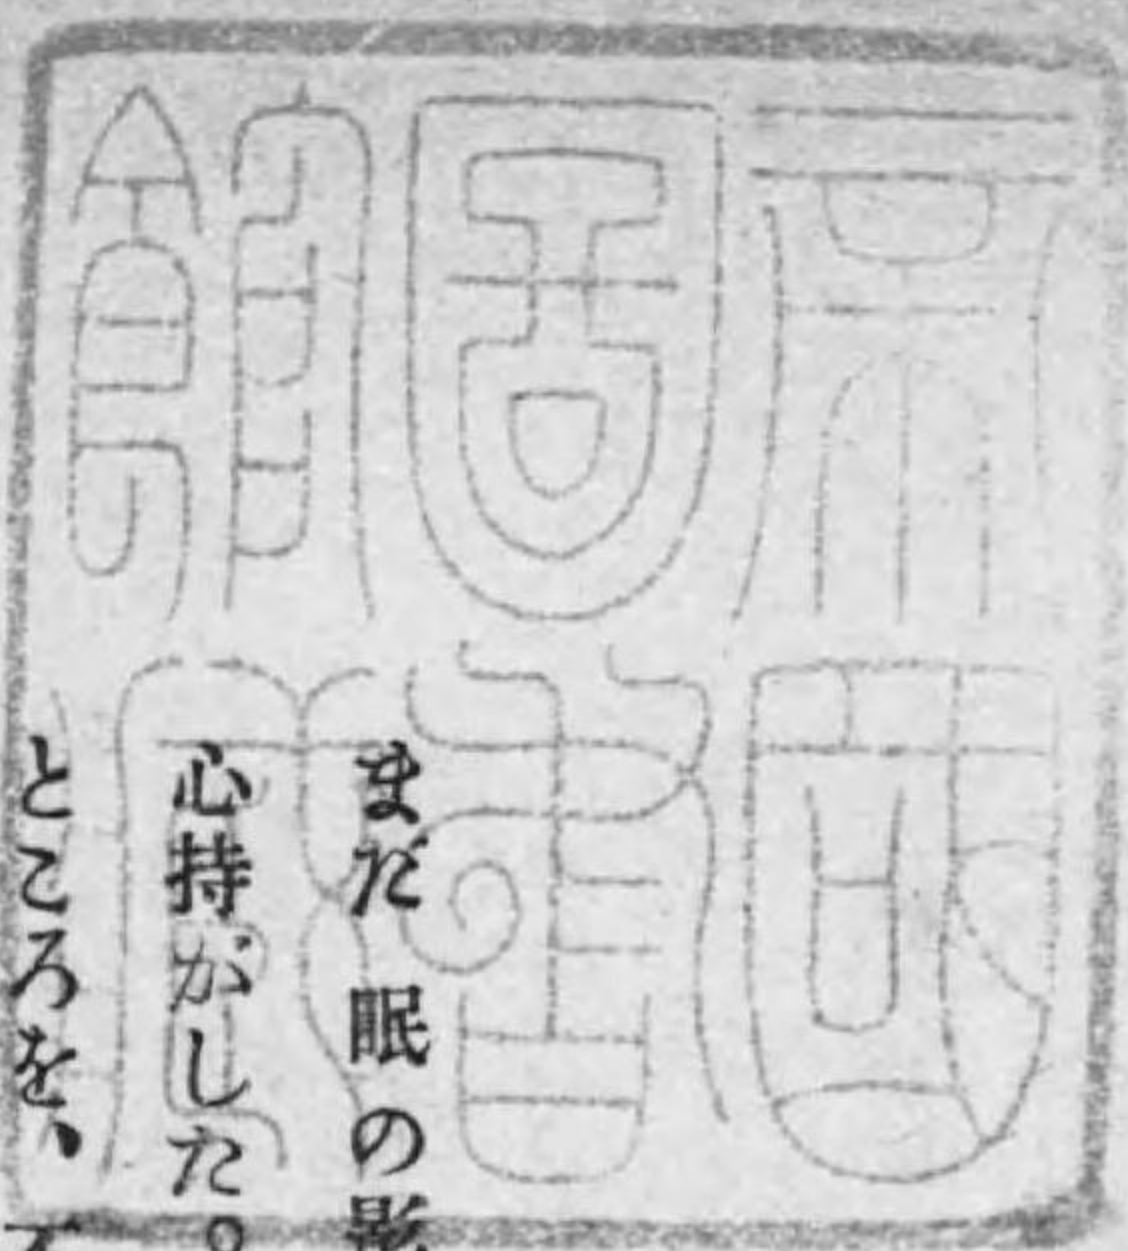 帝國圖書館藏
まだ眠の影
心持がした。
ところを、